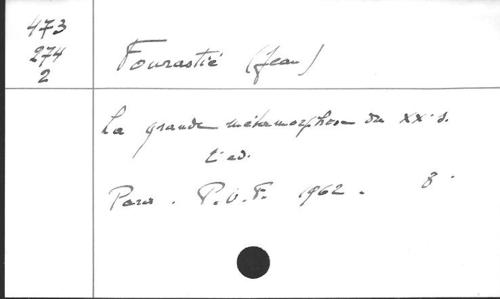 473
274
2
Fourastié (Jean)
La grande métamorphose du XXe s.
ed.
Paris. P.U.F. 1962. 8.